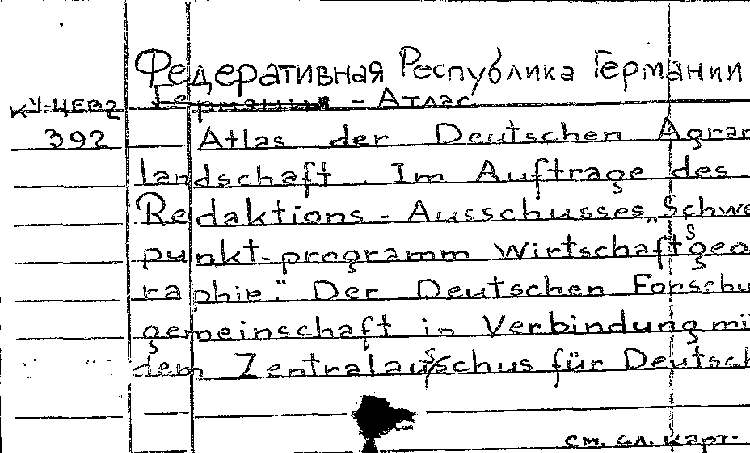 Федеративная Республика Германии
Германия - Атлас
КУ-ЦЕВ2
392
Atlas der Deutschen Agrar
landschaft. Im Auftrage des
Redaktions-Ausschusses „Schwe
punkt-programm Wirtschaftsgeo
raphie." Der Deutschen Forschu
gemeinschaft in Verbindung mi
dem Zentralausschus für Deutsch
см. сл. карт.